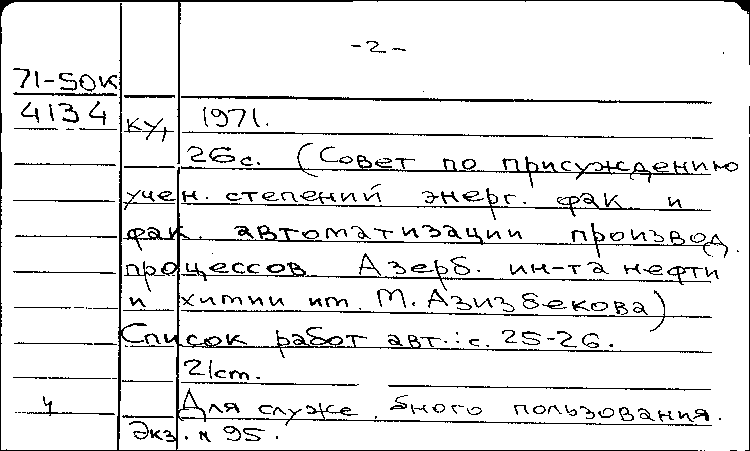 -2-
71-50К
4134
ку, 1971.
26с. (Совет по присуждению
учен. степений энерг. фак и
фак. автоматизации производ.
процессов Азерб. ин-та нефти
и химии им. М. Азизбекова)
Список работ авт.: с. 25-26.
21см.
4 Для служе бного пользования.
Экз. № 95.